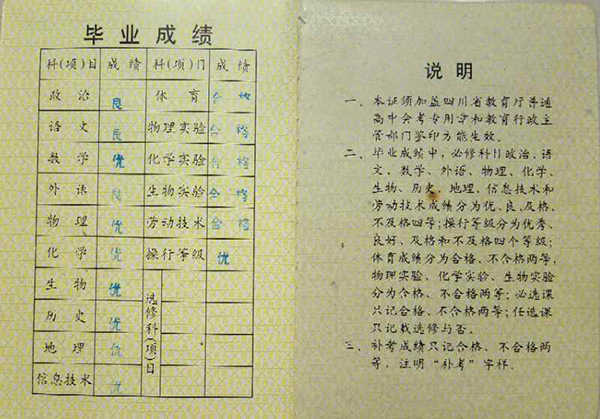 毕业成绩
科(项)目 成绩 科(项)门 成绩
政治 良 体育 合格
语文 良 物理实验 合格
数学 优 化学实验 合格
外语 良 生物实验 合格
物理 优 劳动技术 合格
化学 优 操行等级 优
生物 优
历史 优
地理 优
信息技术 优
选修科(项)目
说明
一、本证须加盖四川省教育厅普通
高中会考专用章和教育行政主
管部门签印方能生效。
二、毕业成绩中，必修科目政治、语
文、数学、外语、物理、化学、
生物、历史、地理、信息技术和
劳动技术成绩分为优、良、及格、
不及格四等；操行等级分为优秀、
良好、及格和不及格四个等级；
体育成绩分为合格、不合格两等，
物理实验、化学实验、生物实验
分为合格、不合格两等；必选课
只记合格、不合格两等；任选课
只记载选修与否。
三、补考成绩只记合格、不合格两
等，注明“补考”字样。